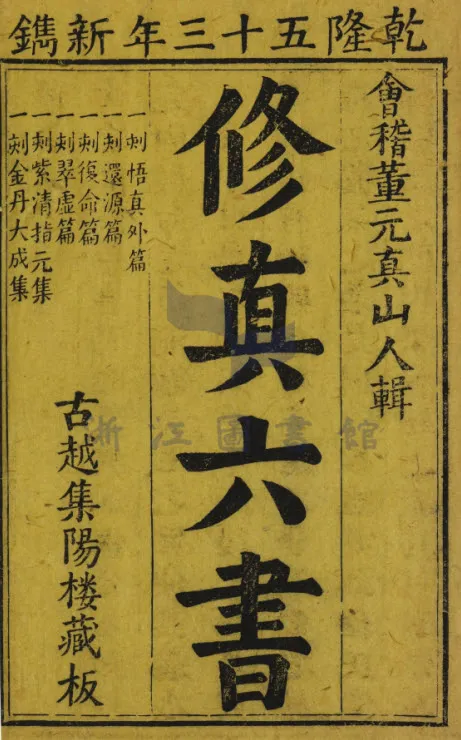 乾隆五十三年新鐫
會稽董元真山人輯
修真六書
一刻悟真外篇
一刻還源篇
一刻復命篇
一刻翠虛篇
一刻紫清指元集
一刻金丹大成集
古越集陽楼藏板
浙江圖書館